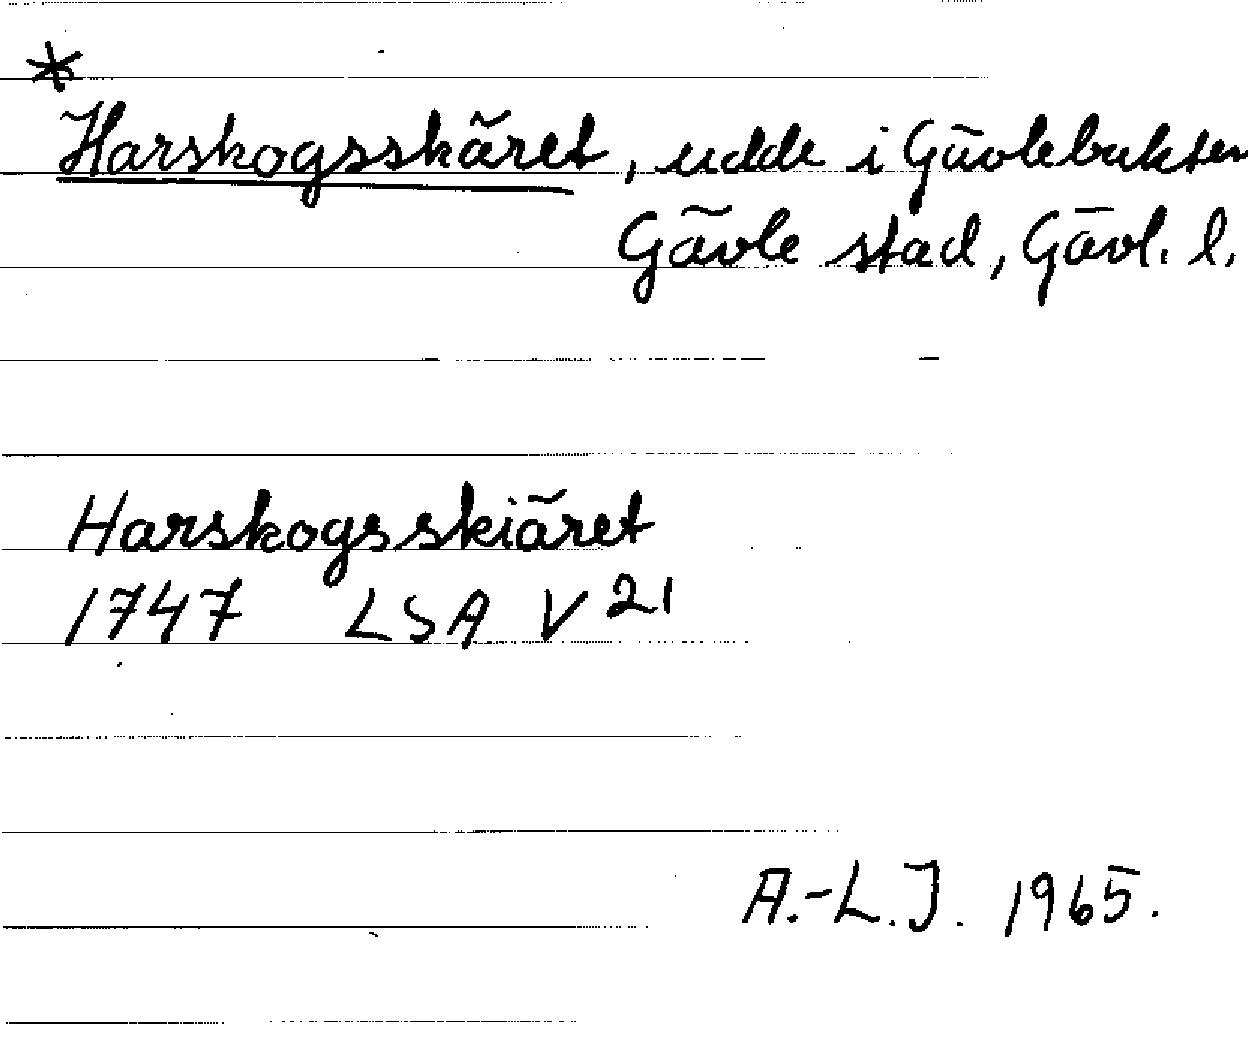 *
Harskogsskäret, udde i Gävlebukten
Gävle stad, Gävl. l.
Harskogsskiäret
1747 LSA V 21
A.-L.J. 1965.